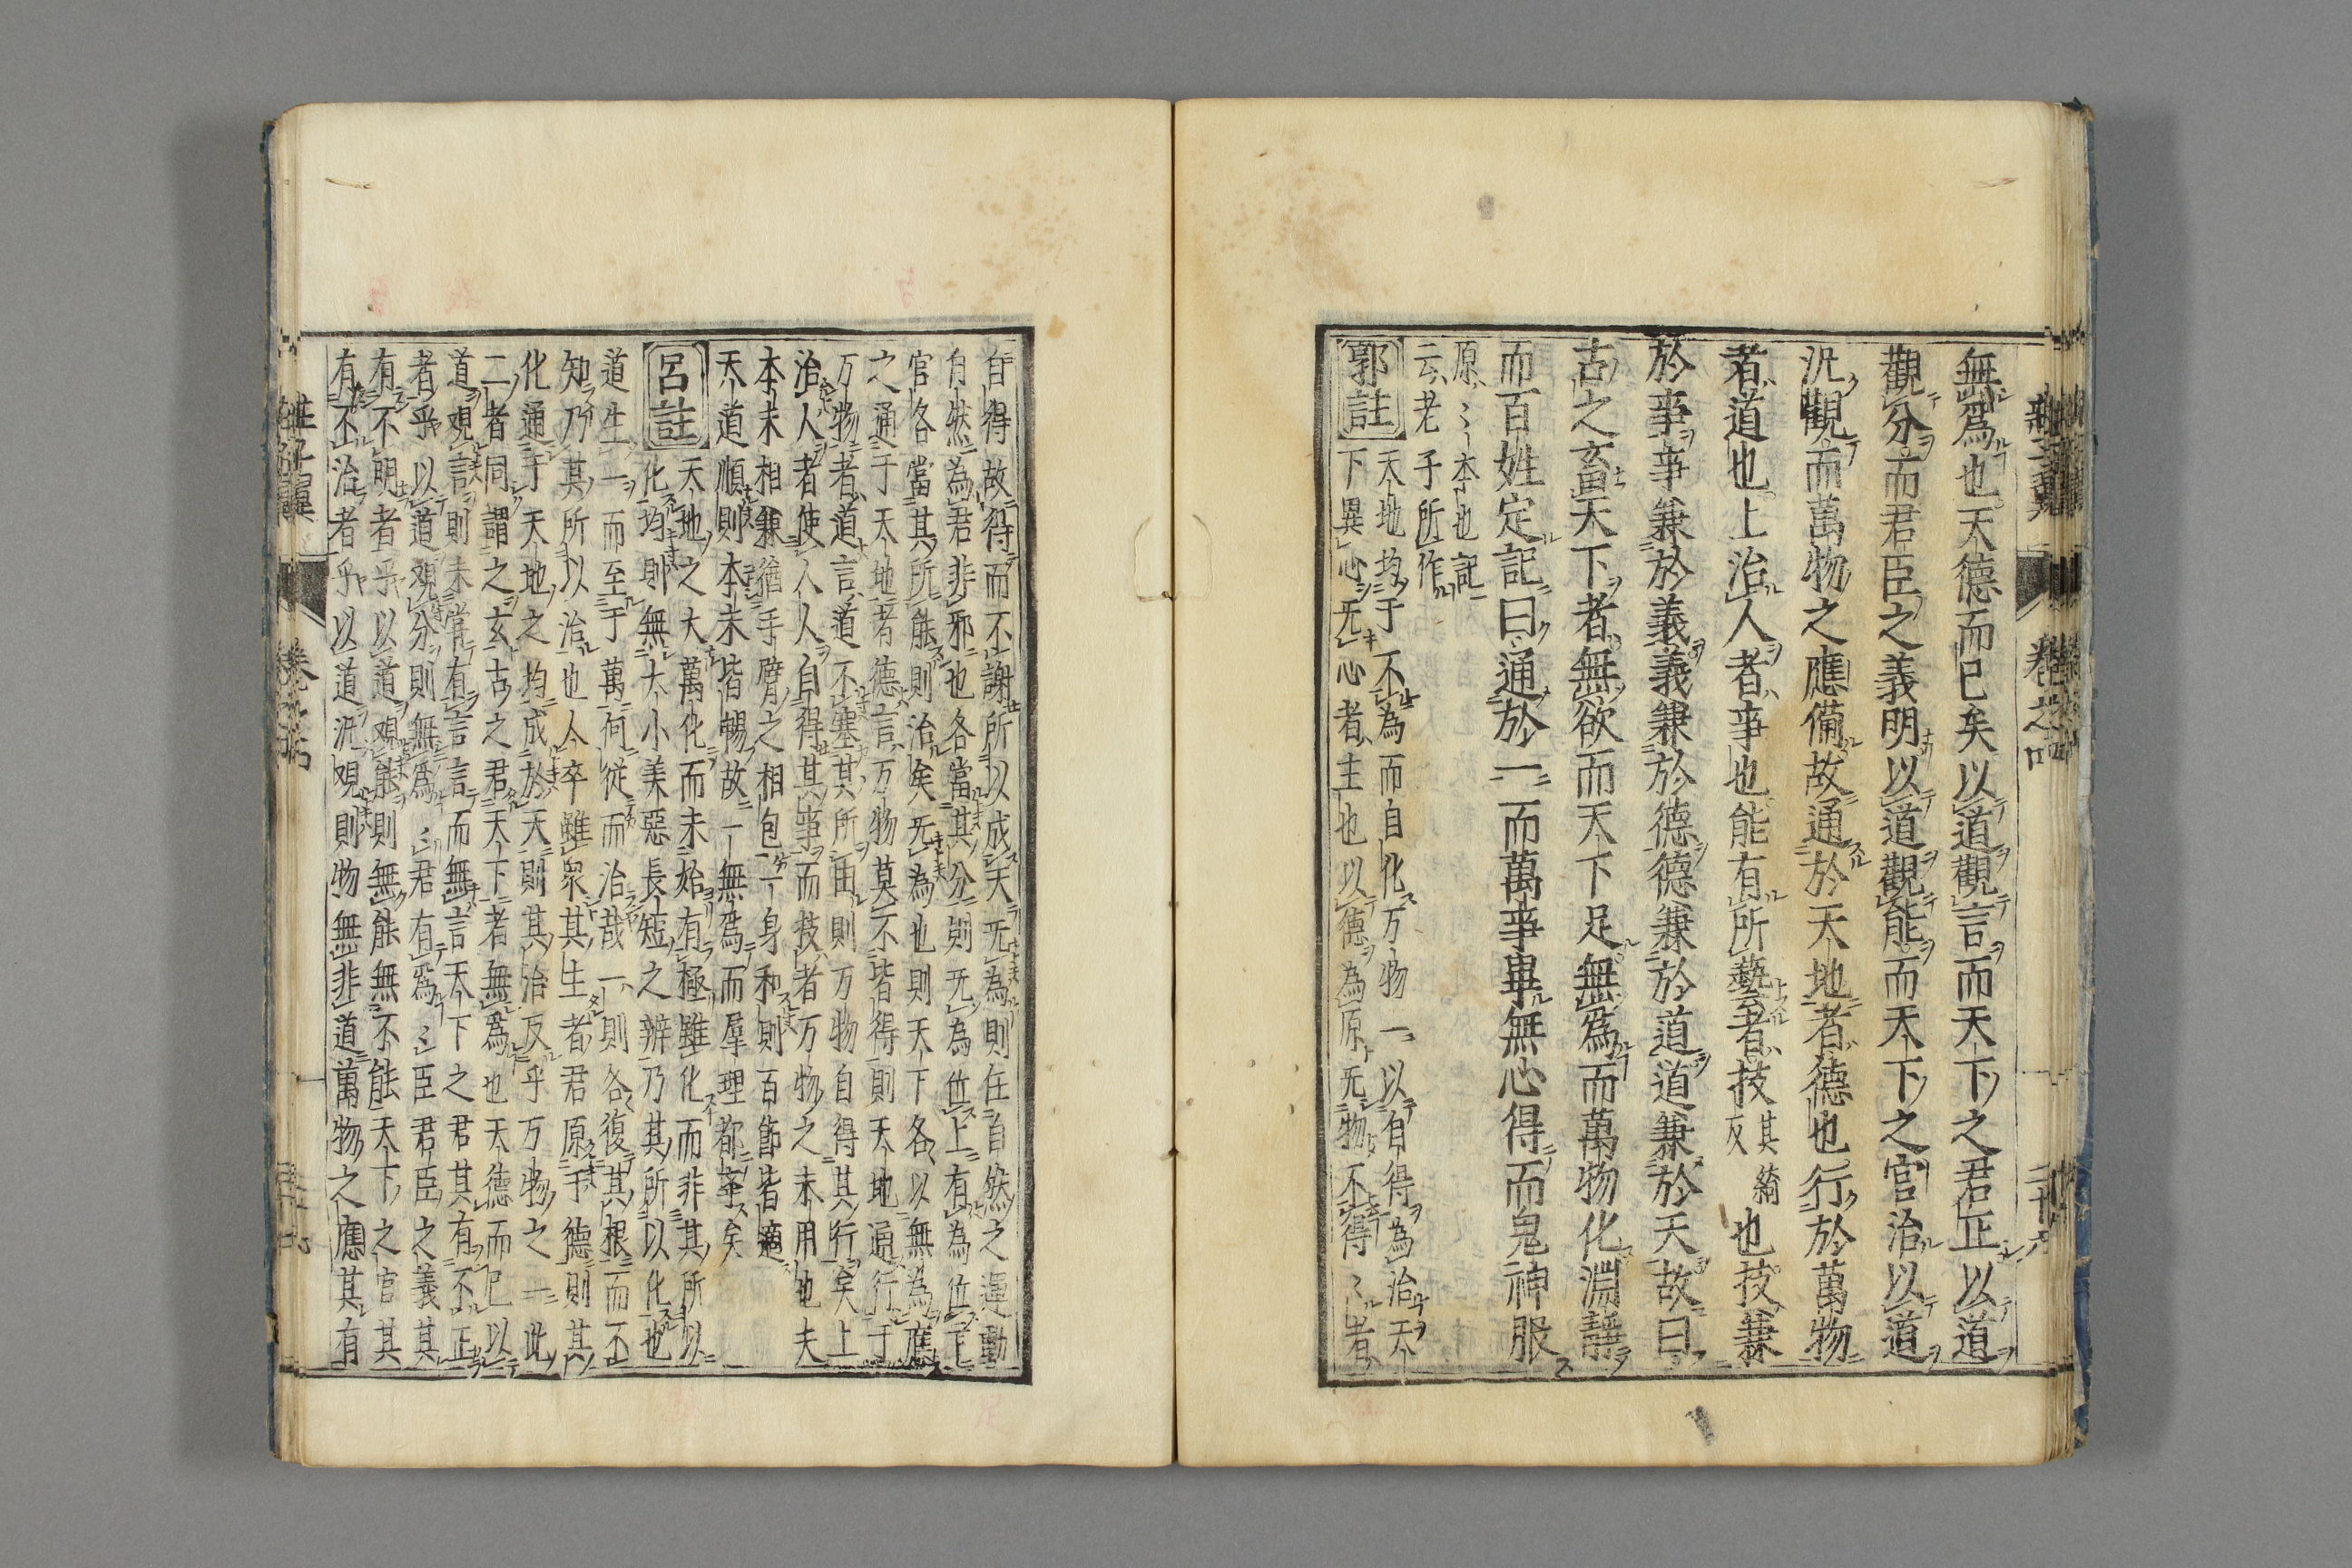 無爲也天德而已矣以道觀言而天下之君正以道
觀分而君臣之義明以道觀能而天下之官治以道
汎觀而萬物之應備故通於天地者德也行於萬物
者道也上治人者事也能有所藝者技其綺反也技兼
於事事兼於義義兼於德德兼於道道兼於天故曰
古之畜天下者無欲而天下足無爲而萬物化淵靜
而百姓定記曰通於一而萬事畢無心得而鬼神服
原〻本也記
云老子所作
郭註
天地均于不為而自化万物一以自得為治天
下異心无心者主也以德為原无物不得〻者
自得故得而不謝所以成天无為則任自然之運動
自然為君非邪也各當其分則无為位上有為位下
官各當其所能則治矣无為也則天下各以無為應
之通于天地者德言万物莫不皆得則天地通行于
万物者道言道不塞其所由則万物自得其行矣上
治人者使人人自得其事而技者万物之末用也夫
本末相兼猶手臂之相包一身和則百節皆適
天道順則本末皆暢故一無爲而羣理都舉矣
呂註
天地之大萬化而未始有極雖化而非其所以
化均則無大小美惡長短之辨乃其所以化也
道生一而至于萬何從而治哉一則各復其根而不
知乃其所以治也人卒雖衆其生者君原于德則其
化通于天地之均成於天則其治反乎万物之一此
二者同謂之玄古之君天下者無爲也天德而已以
道观言則未嘗有言言而無言天下之君其有不正
者乎以道观分則無爲〻君有爲〻臣君臣之義其
有不明者乎以道观能則無能無不能天下之官其
有不治者乎以道汎观則物無非道萬物之應其有